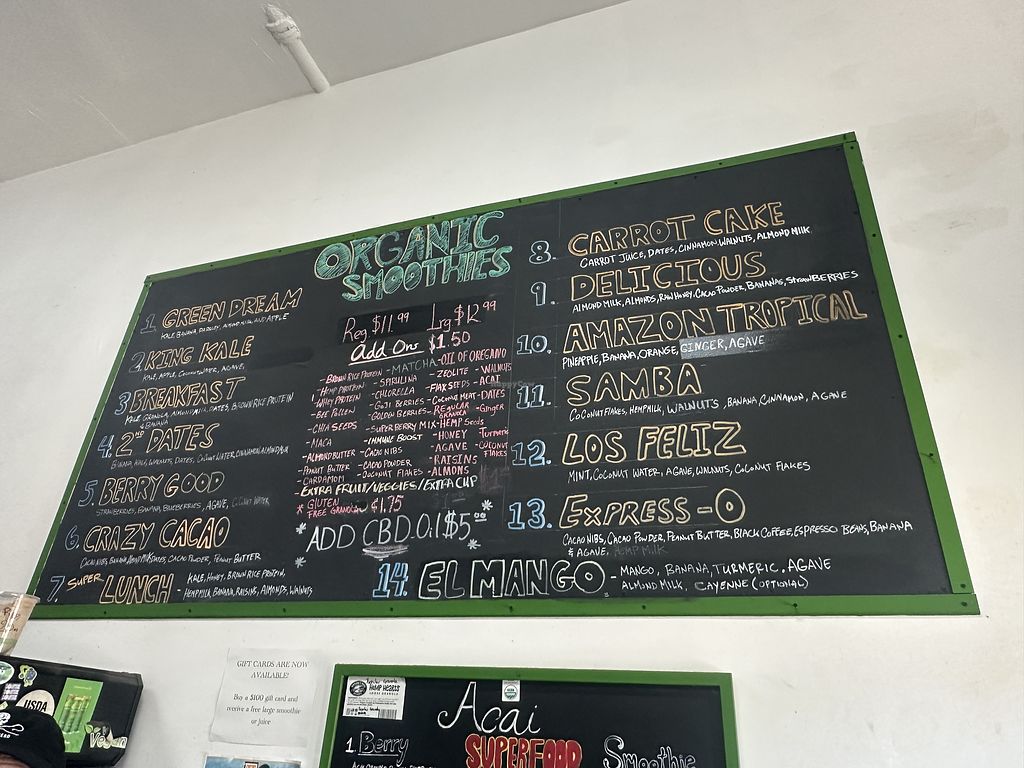 ORGANIC
SMOOTHIES
Reg $11.99 Lrg $12.99
Add Ons $1.50
1. GREEN DREAM
KALE, BANANA, PARSLEY, ALMOND MILK, AND APPLE
2. KING KALE
KALE, APPLE, COCONUT WATER, AGAVE,
3. BREAKFAST
KALE, GRANOLA, ALMOND MILK, DATES, BROWN RICE PROTEIN
& BANANA
4. 2ND DATES
BANANA, KALE, WALNUTS, DATES, COCONUT WATER, CINNAMON, ALMOND MILK
5. BERRY GOOD
STRAWBERRIES, BANANA, BLUEBERRIES, AGAVE, COCONUT WATER
6. CRAZY CACAO
CACAO NIBS, BANANA, ALMOND MILK, DATES, CACAO POWDER, PEANUT BUTTER
7. SUPER LUNCH
KALE, HONEY, BROWN RICE PROTEIN,
- HEMP MILK, BANANA, RAISINS, ALMONDS, WALNUTS
- BROWN RICE PROTEIN
- HEMP PROTEIN
WHEY PROTEIN
- BEE POLLEN
- CHIA SEEDS
- MACA
- ALMOND BUTTER
- PEANUT BUTTER
- CARDAMOM
- MATCHA
- SPIRULINA
- CHLORELLA
- GOJI BERRIES
- GOLDEN BERRIES
- SUPERBERRY MIX
- IMMUNE BOOST
- CACAO NIBS
- CACAO POWDER
- COCONUT FLAKES
- OIL OF OREGANO
- ZEOLITE
- FLAX SEEDS
- COCONUT MEAT
- REGULAR
GRANOLA
- HEMP Seeds
- HONEY
- AGAVE
- RAISINS
- ALMONS
- WALNUTS
- ACAI
- DATES
- Ginger
- Turmeric
- COCONUT
FLAKES
- EXTRA FRUIT/VEGGIES/EXTRA CUP
* GLUTEN
FREE GRANOLA $1.75
* ADD CBD Oil $5.00 *
8. CARROT CAKE
CARROT JUICE, DATES, CINNAMON, WALNUTS, ALMOND MILK
9. DELICIOUS
ALMOND MILK, ALMONDS, RAW HONEY, CACAO POWDER, BANANAS, STRAWBERRIES
10. AMAZON TROPICAL
PINEAPPLE, BANANA, ORANGE, GINGER, AGAVE
11. SAMBA
COCONUT FLAKES, HEMP MILK, WALNUTS, BANANA, CINNAMON, AGAVE
12. LOS FELIZ
MINT, COCONUT WATER, AGAVE, WALNUTS, COCONUT FLAKES
13. ExPRESS-O
CACAO NIBS, CACAO POWDER, PEANUT BUTTER, BLACK COFFEE, ESPRESSO BEANS, BANANA
& AGAVE, HEMP MILK
14. EL MANGO - MANGO, BANANA, TURMERIC, AGAVE
ALMOND MILK, CAYENNE (OPTIONAL)
GIFT CARDS ARE NOW
AVAILABLE!
Buy a $100 gift card and
receive a free large smoothie
or juice
USDA
Vegan
HEMP HEARTS
Acai
SUPERFOOD
Smoothie
1 Berry